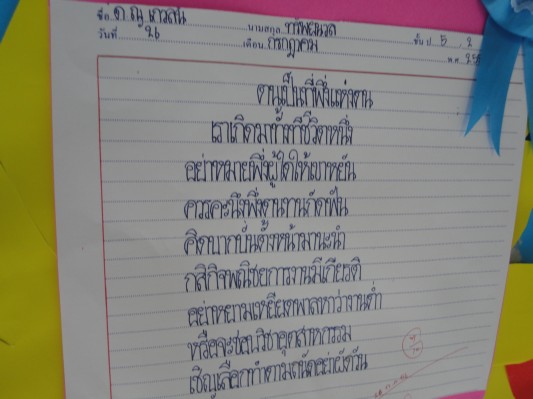 ชื่อ ด ญ เกวลิน นามสกุล ทรัพย์นวล ชั้น ป 5 . 2
วันที่ 26 เดือน กรกฎาคม พ.ศ. 25
ตนเป็นที่พึ่งแห่งตน
เราเกิดมาทั้งทีชีวิตหนึ่ง
อย่าหมายพึ่งผู้ใดให้เขาหยัน
ควรคะนึงพึ่งตนทนกัดฟัน
คิดบากบั่นตั้งหน้ามานะนำ
กสิกิจพณิชยการงานมีเกียรติ
อย่าหยามเหยียดพาลหาว่างานต่ำ
หรือจะชอบวิชาอุตสาหกรรม
เชิญเลือกทำตามถนัดอย่าผัดวัน